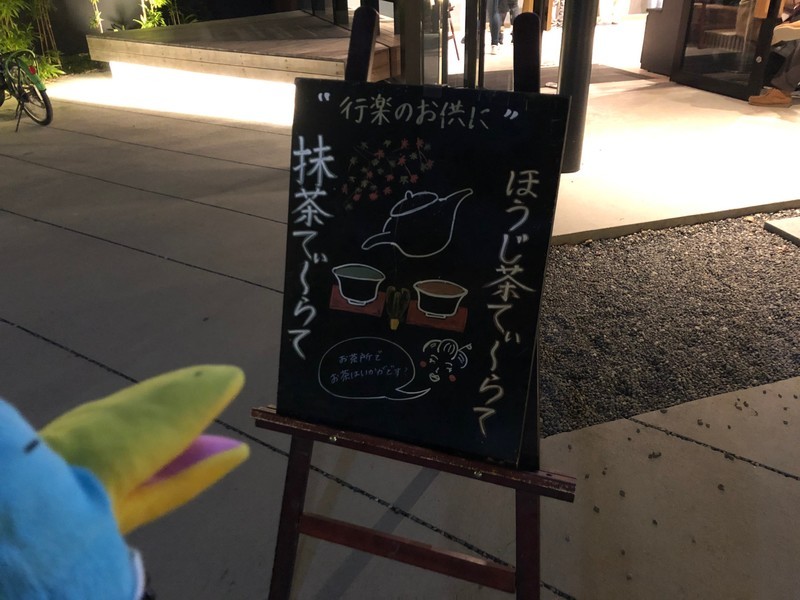 "行楽のお供に"
ほうじ茶てぃ〜らて
抹茶てぃ〜らて
お茶所で
お茶はいかがです！